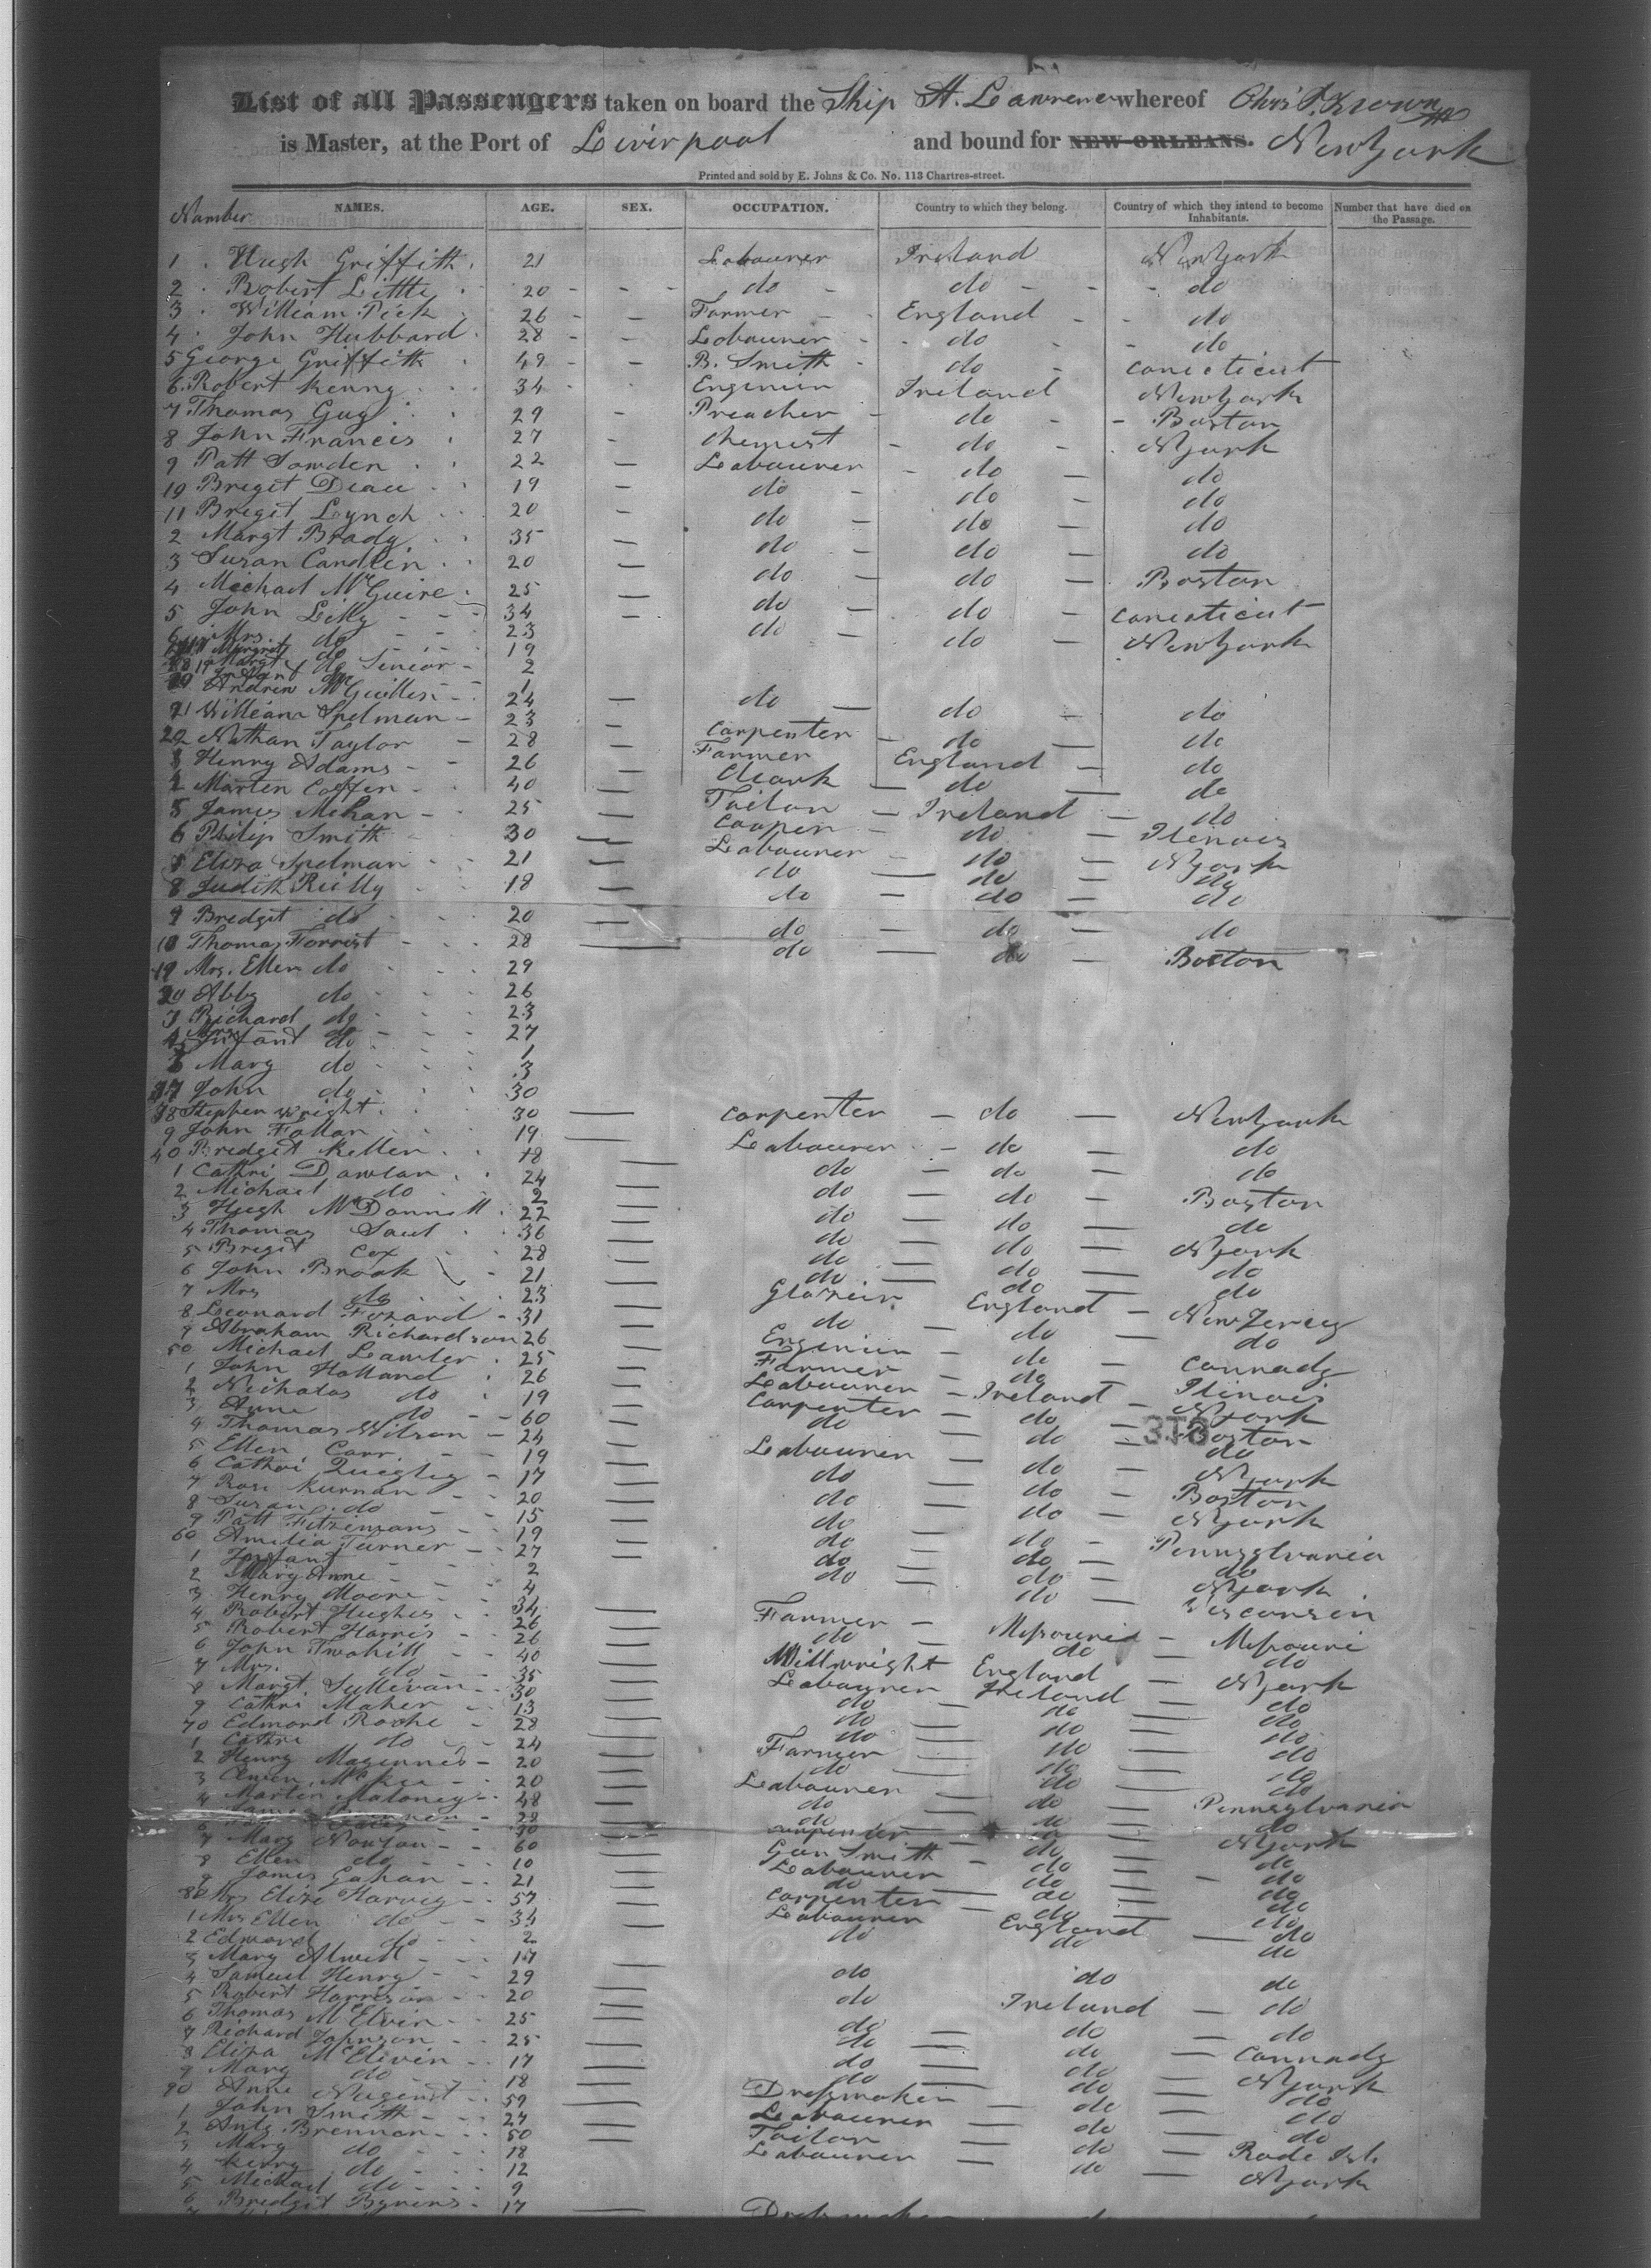 List of all Passengers taken on board the Ship St. Lawrence whereof Chrs. P. Brown
is Master, at the Port of Liverpool and bound for NEW-ORLEANS. New York
Printed and sold by E. Johns & Co. No. 113 Chartres-street.
Number NAMES. AGE. SEX. OCCUPATION. Country to which they belong. Country of which they intend to become Inhabitants. Number that have died on the Passage.
1 Hugh Griffith 21 Labourer Ireland New York
2 Robert Little 20 do do do
3 William Pick 26 Farmer England do
4 John Hubbard 28 Labourer do do
5 George Griffith 49 B. Smith do Conecticut
6 Robert Kenny 34 Enginier Ireland New York
7 Thomas Guy 29 Preacher do Boston
8 John Francis 27 Chemist do N York
9 Patt Sowden 22 Labourer do do
10 Breget 19 do do do
11 Breget Lynch 20 do do do
2 Margt Brady 35 do do do
3 Susan 20 do do Boston
4 Michael McGuire 25 do do Conecticut
5 John Lilly 34 do do New York
6 Mrs. do 23
Margret do 19
Margt do Senior 2
Infant do 1
Andrew 24 do do do
21 William Spelman 23 Carpenter do do
22 Nathan Taylor 28 Farmer England do
3 Henry Adams 26 Cleark do do
4 Marten 40 Tailor Ireland do
5 James Mehan 25 Cooper do Ilinois
6 Philip Smith 30 Labourer do N York
Eliza Spelman 21 do do do
8 Judith Reilly 18 do do do
9 Bredget do 20 do do do
Thomas Forrest 28 do do Boston
Mrs. Ellen do 29
Abby do 26
3 Richard do 23
4 Mrs do 27
Infant do 1
Mary do 3
37 John do 30
38 Stephen Wright 30 Carpenter do New York
9 John Fallon 19 Labourer do do
40 Bredget Kellen 18 do do do
1 Cathri 24 do do Boston
2 Michael do 2 do do do
3 Hugh McDonnell 22 do do N York
4 Thomas 36 do do do
5 Bregit Cox 28 do do do
6 John Brook 21 Glazier England New Jercey
7 Mrs do 23 do do do
8 Leonard Fozard 31 Enginier do Cannady
9 Abraham Richardson 26 Farmer do Ilinois
50 Michael Lawler 25 Labourer Ireland N York
1 John Holland 26 Carpenter do Boston
2 Nicholas do 19 do do do
3 Anne do 60
4 Thomas Wilson 24 Labourer do N York
5 Ellen Carr 19 do do Boston
6 Cathri Quigley 17 do do N York
7 Rose Kurnan 20 do do Pennsylvania
8 Susan do 15 do do do
9 Patt Fitzimons 19 do do N York
60 Amelia Turner 27 do do Visconsin
1 Infant 2
2 Mary Anne 4
3 Henry Moore 34 Farmer Missouri Missouri
4 Robert Hughes 26 do do do
5 Robert Harris 26 Millwright England N York
6 John 40 Labourer Ireland do
7 Mrs. do 35 do do do
8 Margt. Sullivan 30 do do do
9 Cathri Maher 13 do do do
70 Edmond Roche 28 Farmer do do
1 Cathri do 24 do do do
2 Henry Magennes 20 Labourer do Pennsylvania
3 Owen McKee 20 do do do
4 Marten Maloney 48 do do N York
28 Carpenter do do
6 30 Gun Smith do do
7 Mary 60 Labourer do do
8 Ellen do 10 do do do
9 James Gahan 21 Carpenter do do
80 Mrs Eliza Harvey 57 Labourer England do
1 Mrs Ellen do 34 do do do
2 Edward do 2
3 Mary 17
4 Samuel Henry 29 do do do
5 Robert Harrison 20 do Ireland do
6 Thomas McElvin 25 do do do
7 Richard Johnson 25 do do Cannady
8 Eliza McElivin 17 do do N York
9 Mary do 18 do do do
90 Anne Nugent 59 Dressmaker do do
1 John Smith 27 Labourer do do
2 Anty Brennan 50 Tailor do Rode Isl.
3 Mary do 18 Labourer do N York
4 do 12
5 Michael do 9
6 Bredgit Byrens 17 Dressmaker